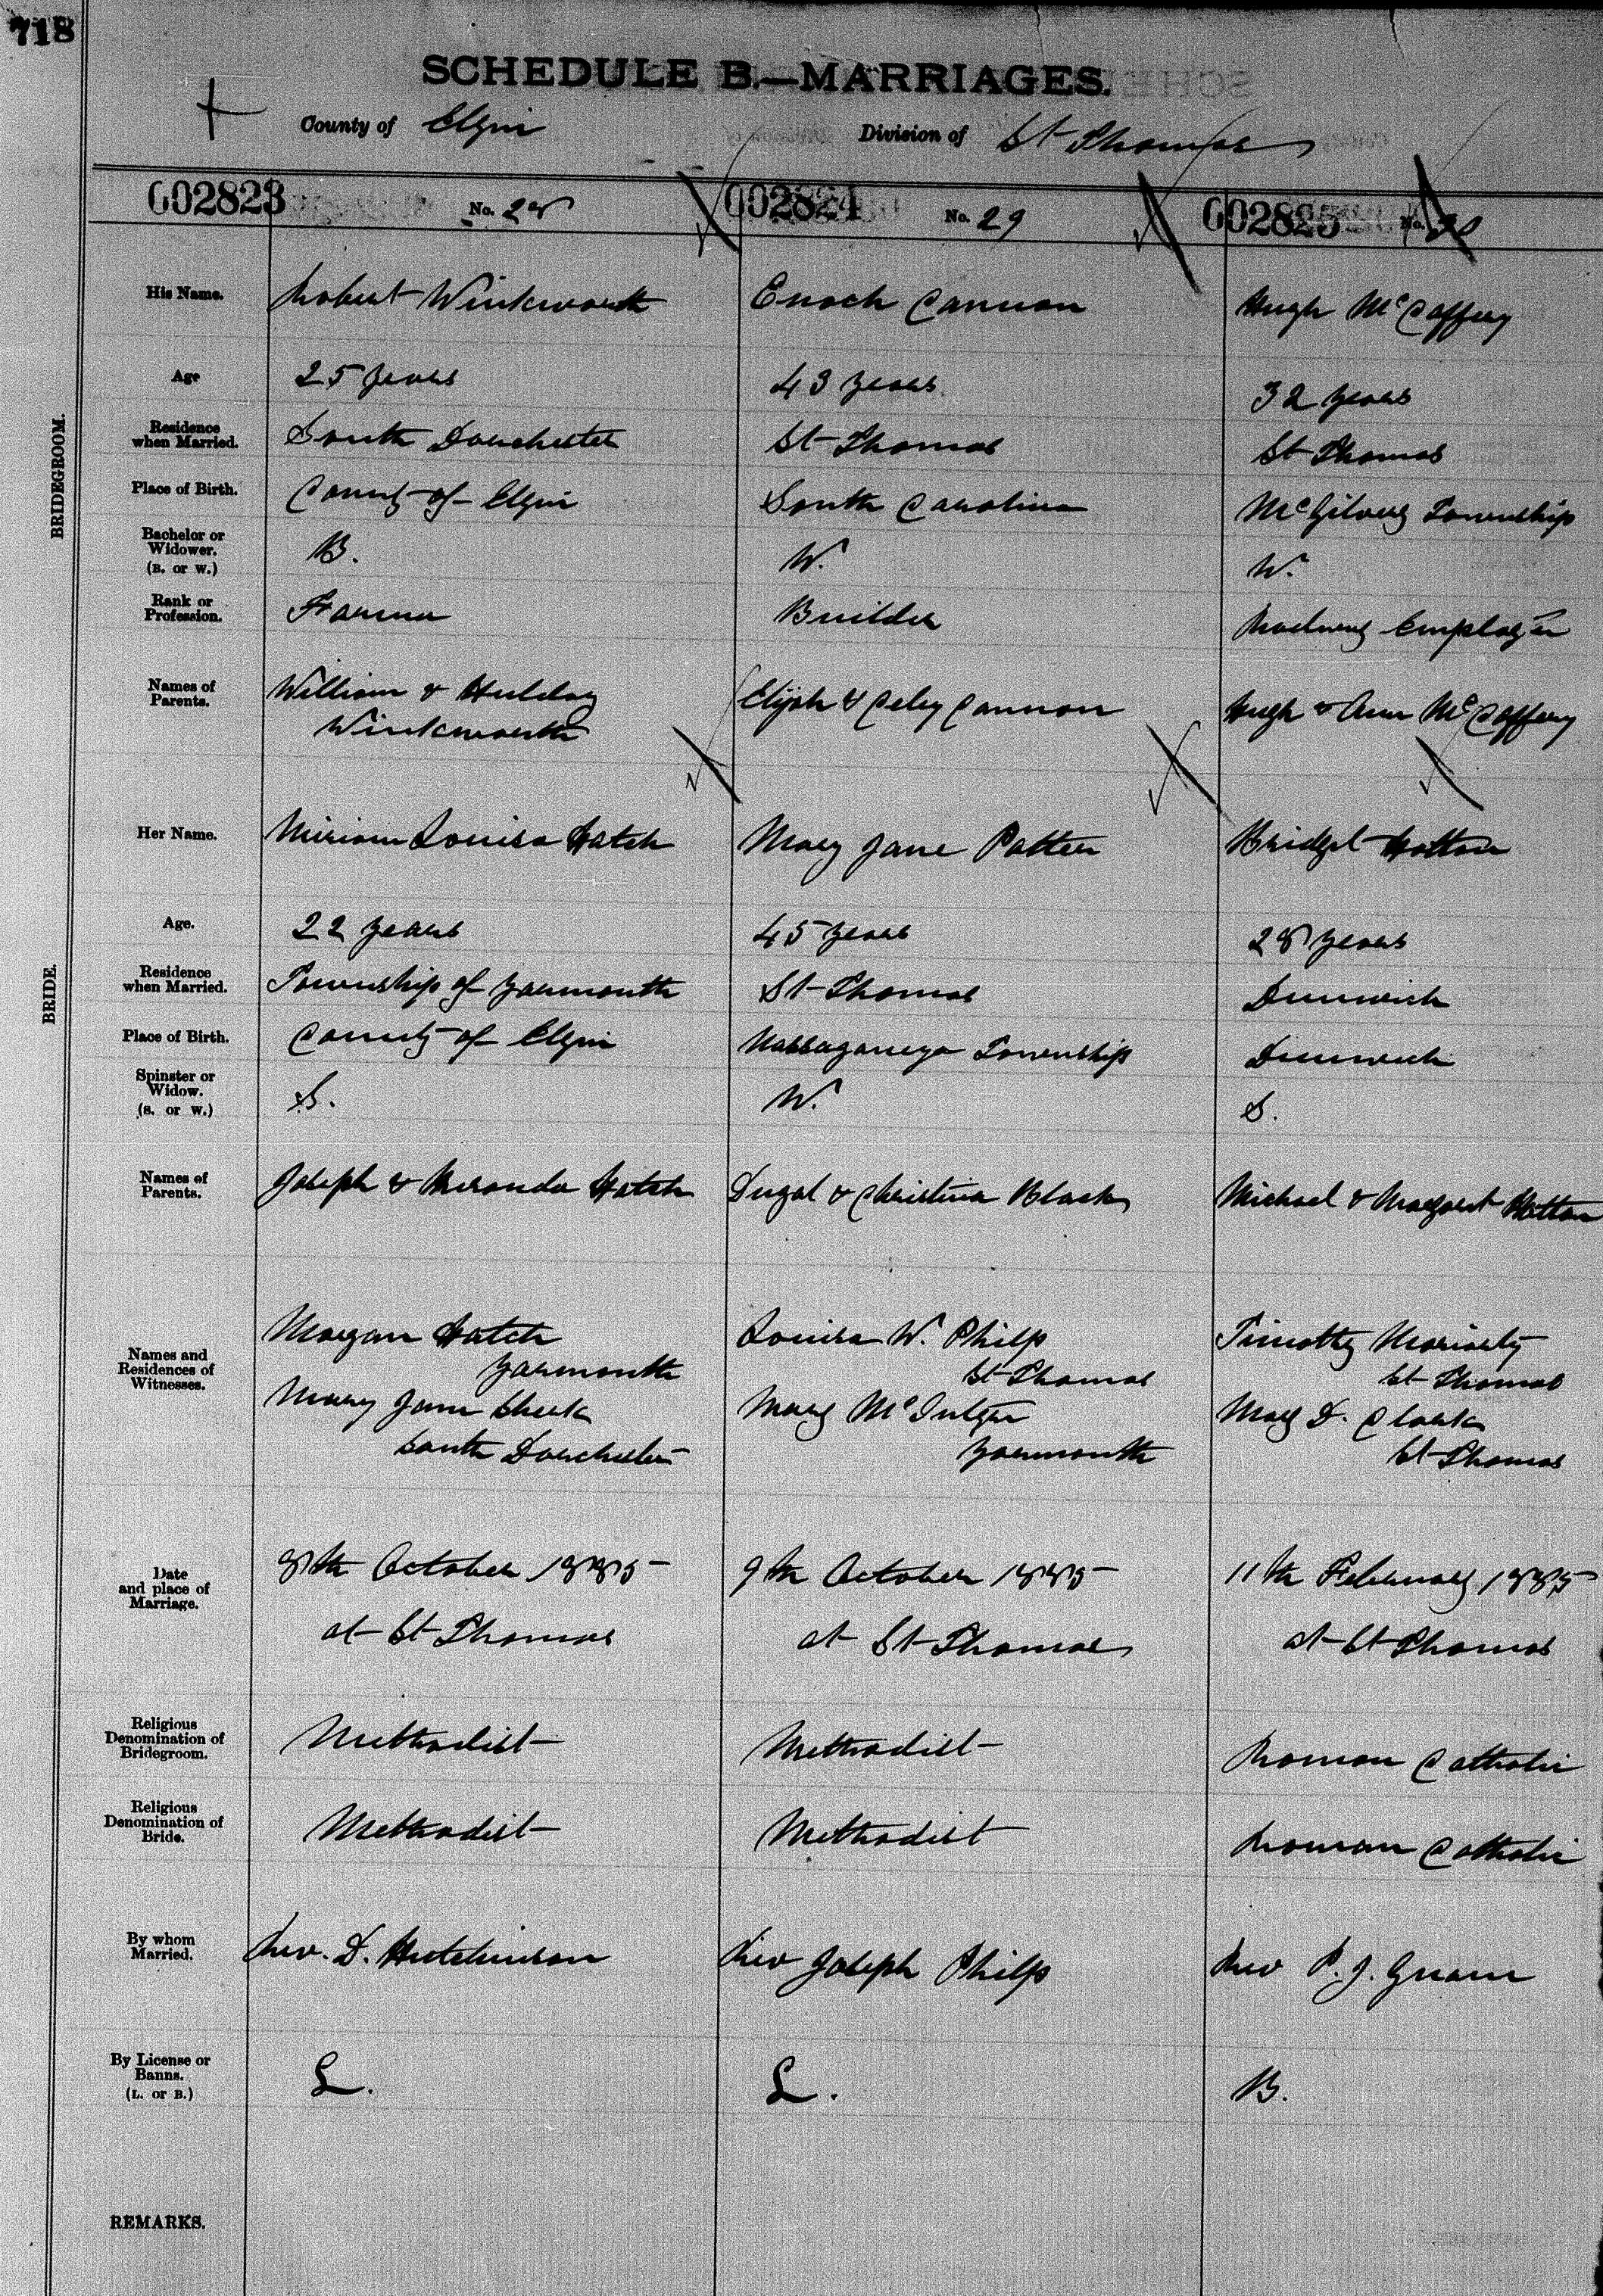 718
SCHEDULE B.—MARRIAGES.
County of Elgin Division of St Thomas
002823 No. 28 002824 No. 29 002825 No. 30
His Name. Robert Winkworth Enoch Cannon Hugh McCaffery
BRIDEGROOM.
Age 25 years 43 years 32 years
Residence when Married. South Dorchester St Thomas St Thomas
Place of Birth. County of Elgin South Carolina McGilvery Township
Bachelor or Widower. (B. or W.) B. W. W.
Rank or Profession. Farmer Builder Railway Employee
Names of Parents. William & Hulday Elijah & Celey Cannon Hugh & Ann McCaffery
Winkworth
Her Name. Miriam Louisa Hatch Mary Jane Patten Bridget Hatton
BRIDE.
Age. 22 years 45 years 28 years
Residence when Married. Township of Yarmouth St Thomas Dunwich
Place of Birth. County of Elgin Nassagaweya Township Dunwich
Spinster or Widow. (S. or W.) S. W. S.
Names of Parents. Joseph & Meranda Hatch Dugal & Christina Black Michael & Margaret Hatton
Names and Residences of Witnesses.
Morgan Hatch Louisa W. Philp Timothy Moriarty
Yarmouth St Thomas St Thomas
Mary Jane Cheek Mary McIntyre Mary D. Clark
South Dorchester Yarmouth St Thomas
Date and place of Marriage. 8th October 1885 9th October 1885 11th February 1885
at St Thomas at St Thomas at St Thomas
Religious Denomination of Bridegroom. Methodist Methodist Roman Catholic
Religious Denomination of Bride. Methodist Methodist Roman Catholic
By whom Married. Rev. D. Hutchinson Rev Joseph Philp Rev P. J.
By License or Banns. (L. or B.) L. L. B.
REMARKS.